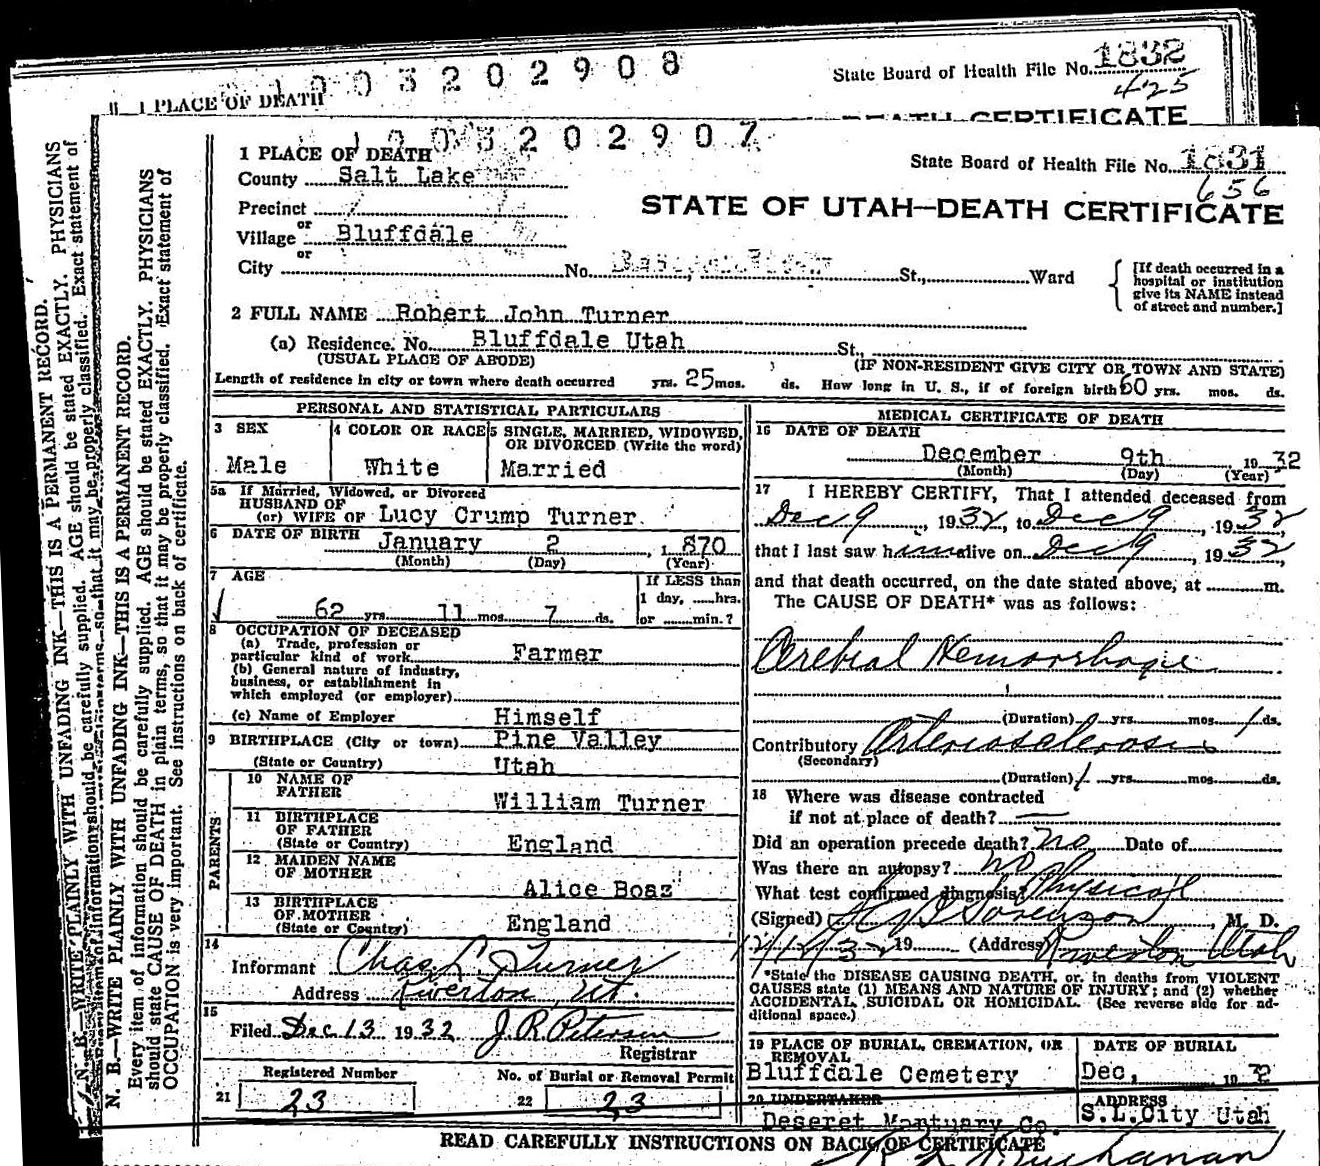 1 0 0 3 2 0 2 9 0 8
State Board of Health File No. 1832
425
1 PLACE OF DEATH
DEATH CERTIFICATE
1 0 0 3 2 0 2 9 0 7
1 PLACE OF DEATH
State Board of Health File No. 1831
656
County Salt Lake
STATE OF UTAH—DEATH CERTIFICATE
Precinct
or
Village Bluffdale
or
City No. St., Ward
[If death occurred in a
hospital or institution
give its NAME instead
of street and number.]
2 FULL NAME Robert John Turner
(a) Residence. No. Bluffdale Utah St.,
(USUAL PLACE OF ABODE) (IF NON-RESIDENT GIVE CITY OR TOWN AND STATE)
Length of residence in city or town where death occurred yrs. 25 mos. ds. How long in U. S., if of foreign birth 60 yrs. mos. ds.
PERSONAL AND STATISTICAL PARTICULARS
3 SEX
Male
4 COLOR OR RACE
White
5 SINGLE, MARRIED, WIDOWED,
OR DIVORCED (Write the word)
Married
5a If Married, Widowed, or Divorced
HUSBAND OF
(or) WIFE OF Lucy Crump Turner
6 DATE OF BIRTH January 2, 1 870
(Month) (Day) (Year)
7 AGE
If LESS than
1 day, ......hrs.
62 yrs. 11 mos. 7 ds.
or ......min.?
8 OCCUPATION OF DECEASED
(a) Trade, profession or
particular kind of work Farmer
(b) General nature of industry,
business, or establishment in
which employed (or employer)
(c) Name of Employer Himself
9 BIRTHPLACE (City or town) Pine Valley
(State or Country) Utah
PARENTS
10 NAME OF
FATHER
William Turner
11 BIRTHPLACE
OF FATHER
(State or Country) England
12 MAIDEN NAME
OF MOTHER
Alice Boaz
13 BIRTHPLACE
OF MOTHER
(State or Country) England
14
Informant Chas L. Turner
Address Riverton, Ut.
15
Filed Dec 13 1932 J. R. Peterson
Registrar
Registered Number
21 23
No. of Burial or Removal Permit
22 23
MEDICAL CERTIFICATE OF DEATH
16 DATE OF DEATH
December 9th 1932
(Month) (Day) (Year)
17 I HEREBY CERTIFY, That I attended deceased from
Dec 9, 1932, to Dec 9, 1932
that I last saw him alive on Dec 9, 1932,
and that death occurred, on the date stated above, at ......m.
The CAUSE OF DEATH* was as follows:
Cerebial Hemorrhage
(Duration) yrs. mos. 1 ds.
Contributory Arteriosclerosis
(Secondary)
(Duration) 1 yrs. mos. ds.
18 Where was disease contracted
if not at place of death? —
Did an operation precede death? No Date of
Was there an autopsy? No
What test confirmed diagnosis? Physical
(Signed) Sorenson, M. D.
12/12/32 19 (Address) Riverton Utah
*State the DISEASE CAUSING DEATH, or, in deaths from VIOLENT
CAUSES state (1) MEANS AND NATURE OF INJURY; and (2) whether
ACCIDENTAL, SUICIDAL OR HOMICIDAL. (See reverse side for ad-
ditional space.)
19 PLACE OF BURIAL, CREMATION, OR
REMOVAL
Bluffdale Cemetery
DATE OF BURIAL
Dec, 1932
20 UNDERTAKER
Deseret Mortuary Co.
ADDRESS
S.L.City Utah
READ CAREFULLY INSTRUCTIONS ON BACK OF CERTIFICATE
Buchanan
N. B.—WRITE PLAINLY WITH UNFADING INK—THIS IS A PERMANENT RECORD.
Every item of information should be carefully supplied. AGE should be stated EXACTLY. PHYSICIANS
should state CAUSE OF DEATH in plain terms, so that it may be properly classified. Exact statement of
OCCUPATION is very important. See instructions on back of certificate.
N. B.—WRITE PLAINLY WITH UNFADING INK—THIS IS A PERMANENT RECORD.
information should be carefully supplied. AGE should be stated EXACTLY. PHYSICIANS
so that it may be properly classified. Exact statement of